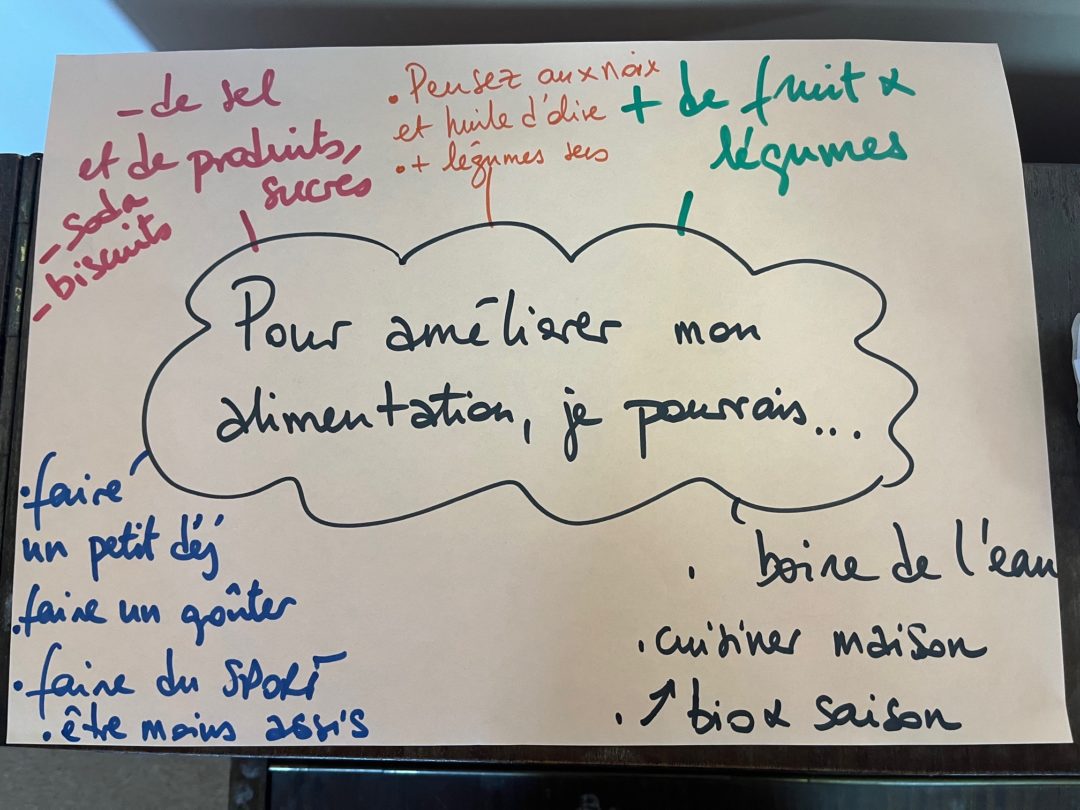 - de sel
et de produits,
sucres
- soda
- biscuits
. Pensez aux noix
et huile d'olive
. + légumes secs
+ de fruit &
légumes
Pour améliorer mon
alimentation, je pourrais...
. faire
un petit déj
. faire un goûter
. faire du SPORT
. être moins assis
. boire de l'eau
. cuisiner maison
. ↗ bio & saison